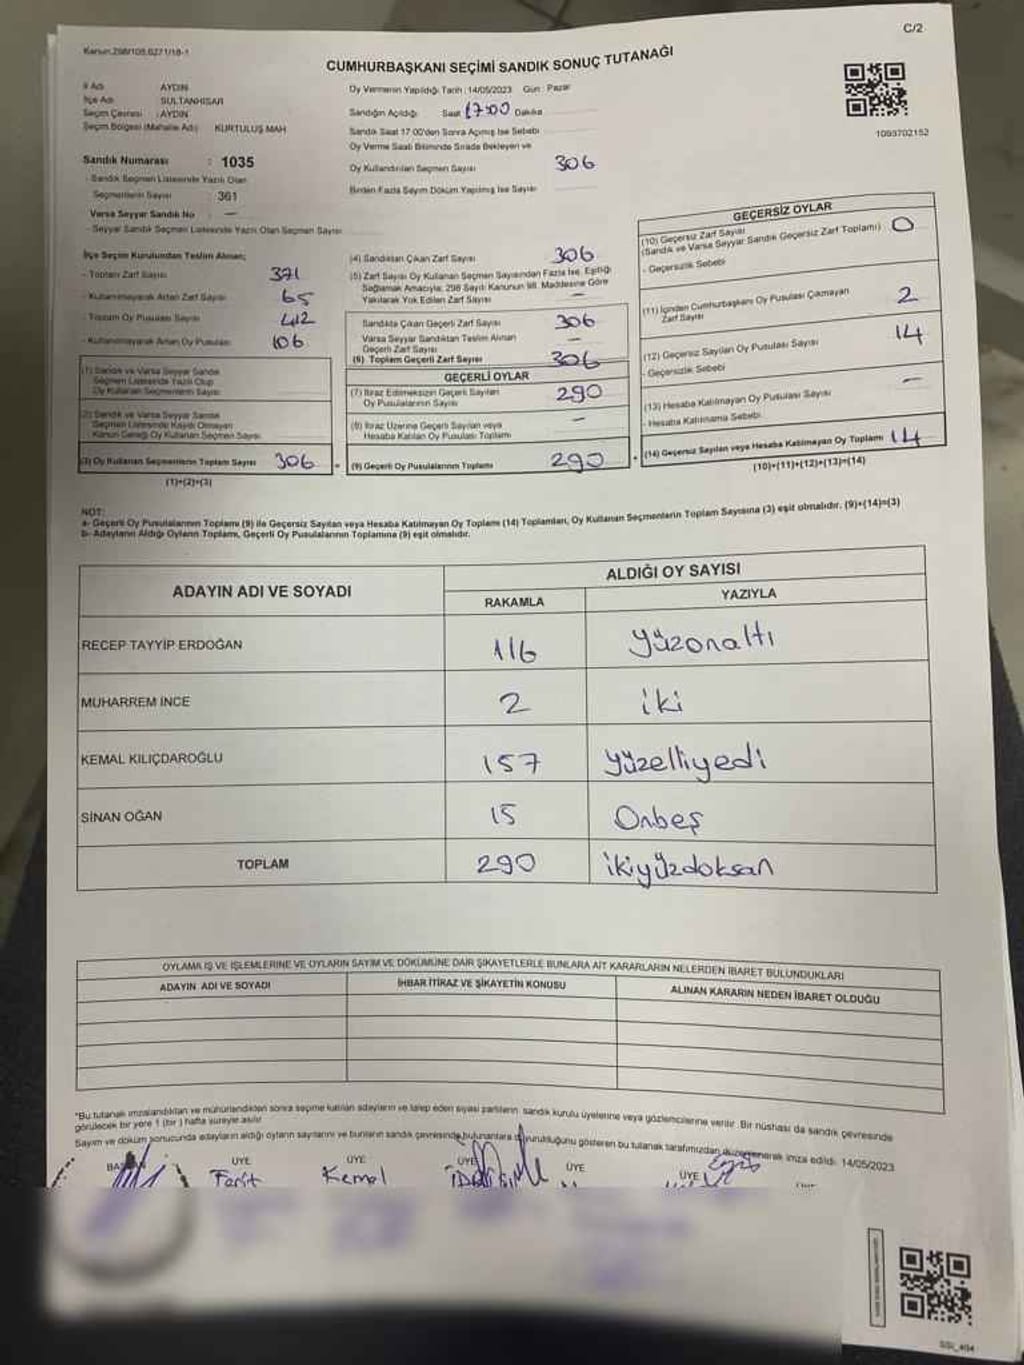 C/2
Kanun:298/105,6271/18-1
CUMHURBAŞKANI SEÇİMİ SANDIK SONUÇ TUTANAĞI
İl Adı AYDIN
İlçe Adı SULTANHİSAR
Seçim Çevresi : AYDIN
Seçim Bölgesi (Mahalle Adı) KURTULUŞ MAH
Sandık Numarası : 1035
- Sandık Seçmen Listesinde Yazılı Olan
Seçmenlerin Sayısı 361
Varsa Seyyar Sandık No : —
- Seyyar Sandık Seçmen Listesinde Yazılı Olan Seçmen Sayısı
Oy Vermenin Yapıldığı Tarih : 14/05/2023 Gün : Pazar
Sandığın Açıldığı Saat 17:00 Dakika
Sandık Saat 17:00'den Sonra Açılmış İse Sebebi
Oy Verme Saati Bitiminde Sırada Bekleyen ve
Oy Kullandırılan Seçmen Sayısı 306
Birden Fazla Sayım Döküm Yapılmış İse Sayısı
1093702152
İlçe Seçim Kurulundan Teslim Alınan;
- Toplam Zarf Sayısı 371
- Kullanılmayarak Artan Zarf Sayısı 65
- Toplam Oy Pusulası Sayısı 412
- Kullanılmayarak Artan Oy Pusulası 106
(1) Sandık ve Varsa Seyyar Sandık
Seçmen Listesinde Yazılı Olup
Oy Kullanan Seçmenlerin Sayısı
(2) Sandık ve Varsa Seyyar Sandık
Seçmen Listesinde Kaydı Olmayan
Kanun Gereği Oy Kullanan Seçmen Sayısı
(3) Oy Kullanan Seçmenlerin Toplam Sayısı 306
(1)+(2)=(3)
(4) Sandıktan Çıkan Zarf Sayısı 306
(5) Zarf Sayısı Oy Kullanan Seçmen Sayısından Fazla İse, Eşitliği
Sağlamak Amacıyla; 298 Sayılı Kanunun 98. Maddesine Göre
Yakılarak Yok Edilen Zarf Sayısı —
Sandıkta Çıkan Geçerli Zarf Sayısı 306
Varsa Seyyar Sandıktan Teslim Alınan
Geçerli Zarf Sayısı —
(6) Toplam Geçerli Zarf Sayısı 306
GEÇERLİ OYLAR
(7) İtiraz Edilmeksizin Geçerli Sayılan
Oy Pusulalarının Sayısı 290
(8) İtiraz Üzerine Geçerli Sayılan veya
Hesaba Katılan Oy Pusulası Toplamı —
= (9) Geçerli Oy Pusulalarının Toplamı 290
GEÇERSİZ OYLAR
(10) Geçersiz Zarf Sayısı
(Sandık ve Varsa Seyyar Sandık Geçersiz Zarf Toplamı) 0
- Geçersizlik Sebebi
(11) İçinden Cumhurbaşkanı Oy Pusulası Çıkmayan
Zarf Sayısı 2
(12) Geçersiz Sayılan Oy Pusulası Sayısı 14
- Geçersizlik Sebebi
(13) Hesaba Katılmayan Oy Pusulası Sayısı —
- Hesaba Katılmama Sebebi
+ (14) Geçersiz Sayılan veya Hesaba Katılmayan Oy Toplamı 14
(10)+(11)+(12)+(13)=(14)
NOT:
a- Geçerli Oy Pusulalarının Toplamı (9) ile Geçersiz Sayılan veya Hesaba Katılmayan Oy Toplamı (14) Toplamları, Oy Kullanan Seçmenlerin Toplam Sayısına (3) eşit olmalıdır. (9)+(14)=(3)
b- Adayların Aldığı Oyların Toplamı, Geçerli Oy Pusulalarının Toplamına (9) eşit olmalıdır.
ADAYIN ADI VE SOYADI ALDIĞI OY SAYISI
RAKAMLA YAZIYLA
RECEP TAYYİP ERDOĞAN 116 yüzonaltı
MUHARREM İNCE 2 iki
KEMAL KILIÇDAROĞLU 157 yüzelliyedi
SİNAN OĞAN 15 Onbeş
TOPLAM 290 ikiyüzdoksan
OYLAMA İŞ VE İŞLEMLERİNE VE OYLARIN SAYIM VE DÖKÜMÜNE DAİR ŞİKAYETLERLE BUNLARA AİT KARARLARIN NELERDEN İBARET BULUNDUKLARI
ADAYIN ADI VE SOYADI İHBAR İTİRAZ VE ŞİKAYETİN KONUSU ALINAN KARARIN NEDEN İBARET OLDUĞU
*Bu tutanak imzalandıktan ve mühürlendikten sonra seçime katılan adayların ve talep eden siyasi partilerin sandık kurulu üyelerine veya gözlemcilerine verilir. Bir nüshası da sandık çevresinde
görülecek bir yere 1 (bir) hafta süreyle asılır
Sayım ve döküm sonucunda adayların aldığı oyların sayılarını ve bunların sandık çevresinde bulunanlara duyurulduğunu gösteren bu tutanak tarafımızdan düzenlenerek imza edildi. 14/05/2023
BAŞKAN ÜYE ÜYE ÜYE ÜYE ÜYE
Ferit Kemal